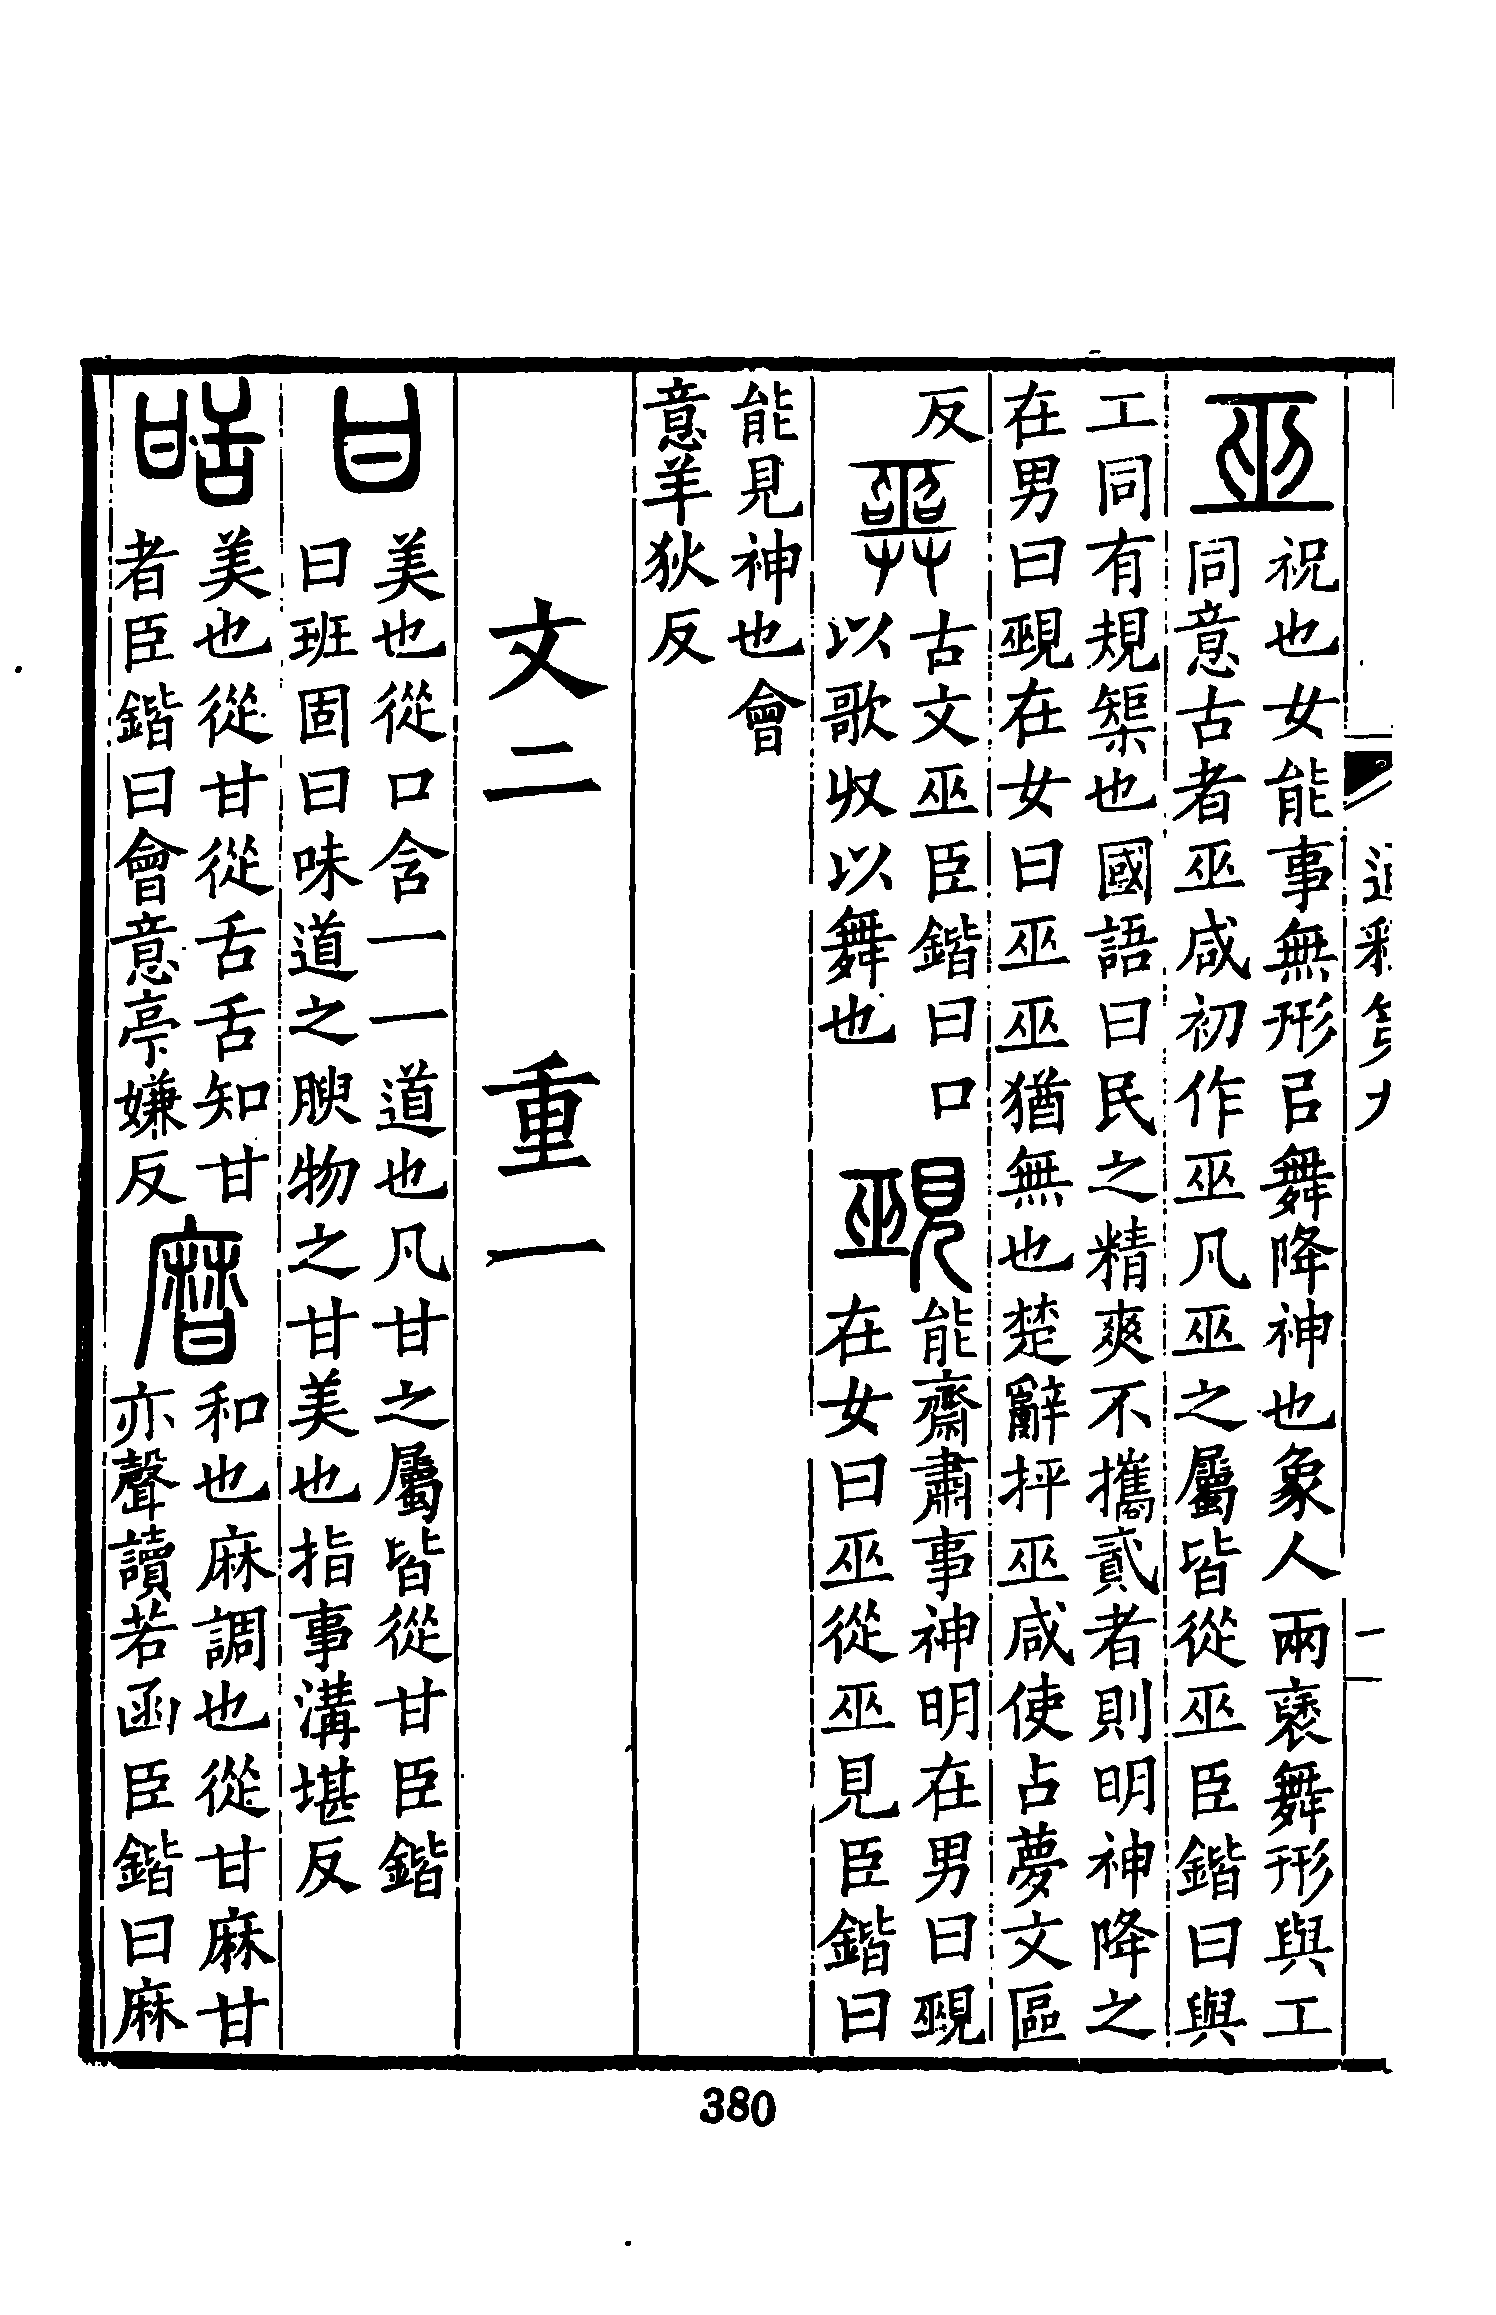 巫
祝也女能事無形㠯舞降神也象人兩褎舞形與工
同意古者巫咸初作巫凡巫之屬皆從巫臣鍇曰與
工同有規榘也國語曰民之精爽不攜貳者則明神降之
在男曰覡在女曰巫巫猶無也楚辭抨巫咸使占夢文區
反
古文巫臣鍇曰口
以歌収以舞也
覡
能齋肅事神明在男曰覡
在女曰巫從巫見臣鍇曰
能見神也會
意羊狄反
文二 重一
甘
美也從口含一一道也凡甘之屬皆從甘臣鍇
曰班固曰味道之腴物之甘美也指事溝堪反
甛
美也從甘從舌舌知甘
者臣鍇曰會意亭嫌反
和也麻調也從甘麻甘
亦聲讀若函臣鍇曰麻
通釋第九
380